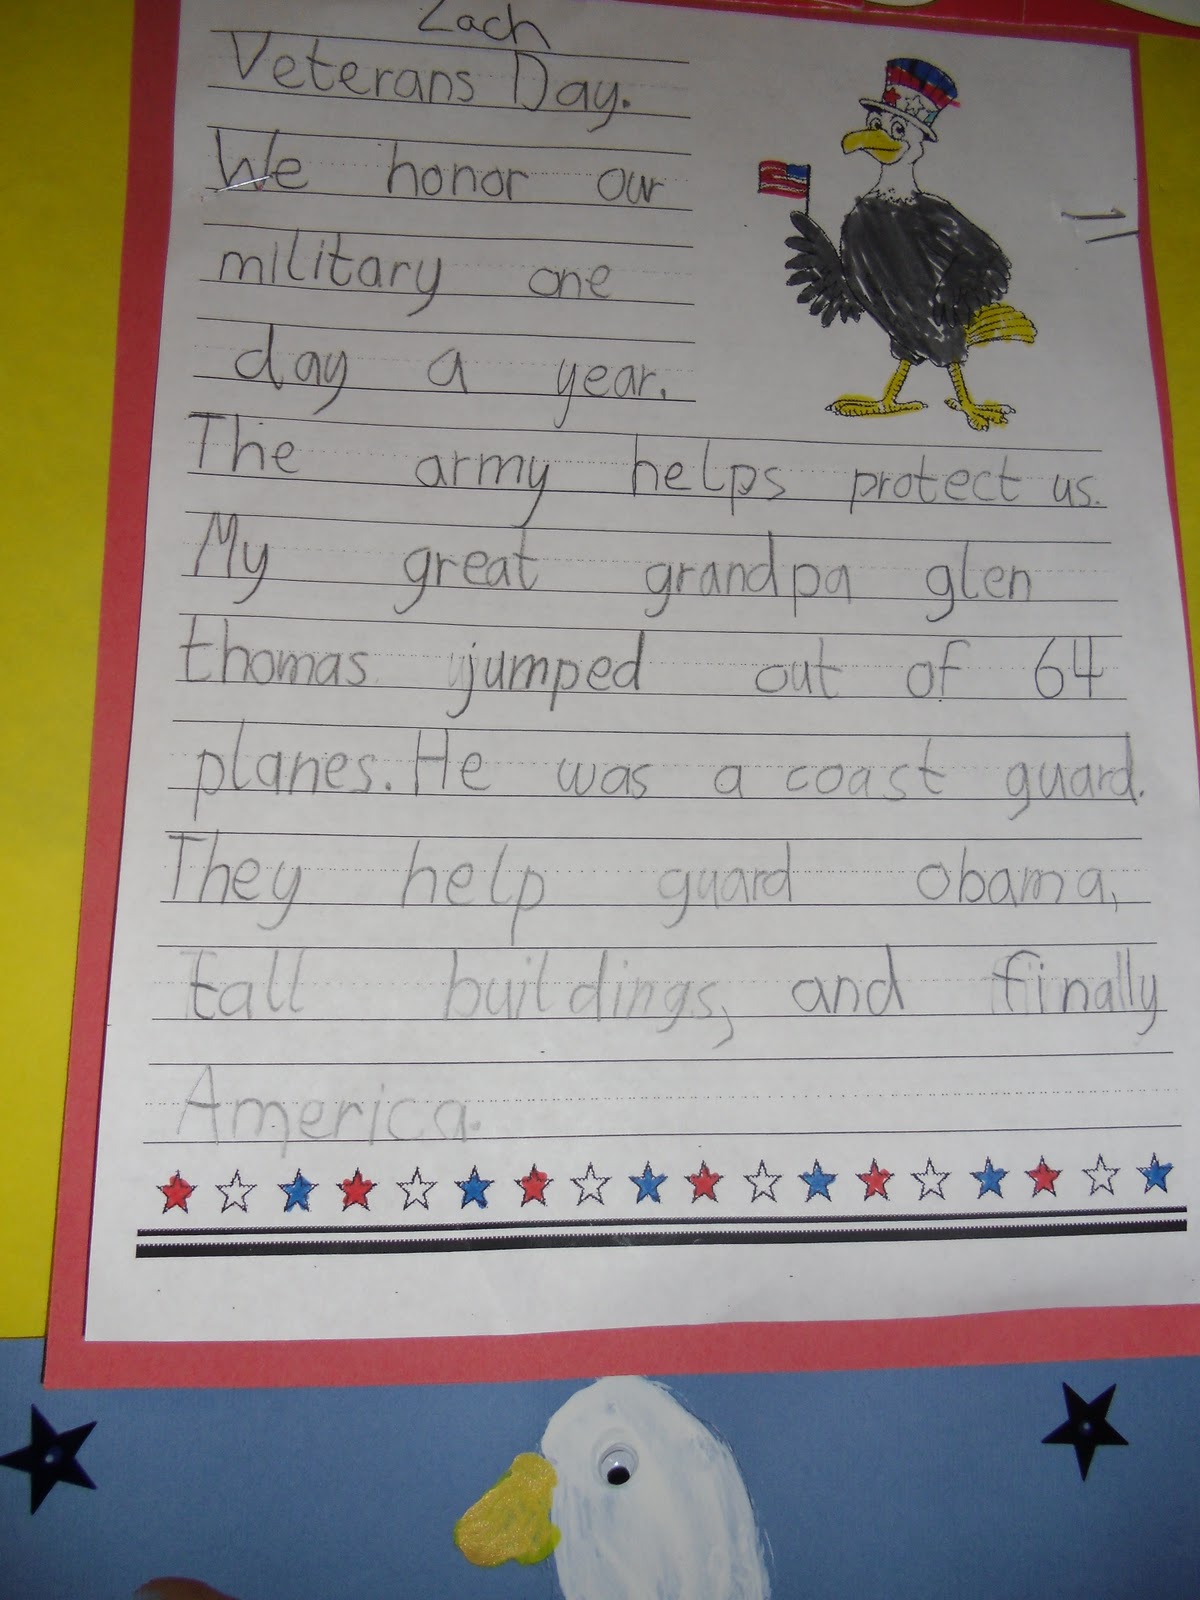 Zach
Veterans Day.
We honor our
military one
day a year.
The army helps protect us.
My great grandpa glen
thomas jumped out of 64
planes. He was a coast guard.
They help guard obama,
tall buildings, and finally
America.